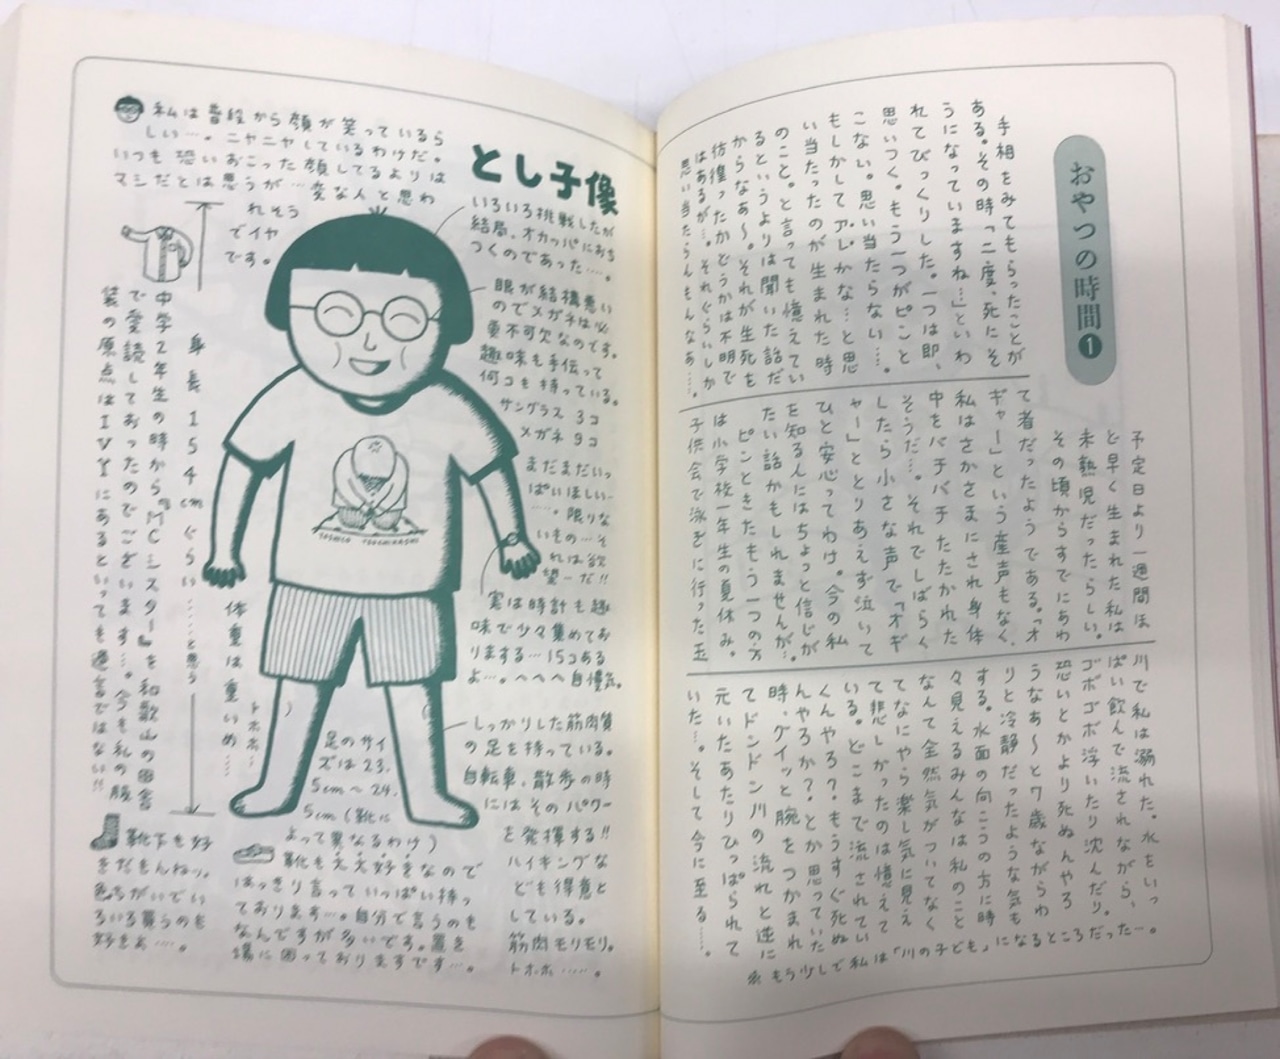 おやつの時間❶
手相をみてもらったことが
ある。その時「二度、死にそ
うになっていますね…」といわ
れてびっくりした。一つは即、
思いつく。もう一つがピンと
こない。思い当たらない…。
もしかしてアレかな…と思
い当たったのが生まれた時
のこと。と言っても憶えてい
るというよりは聞いた話だ
からなあ〜。それが生死を
彷徨ったかどうかは不明で
はあるが…。それぐらいしか
思い当たらんもんなあ…。
予定日より一週間ほ
ど早く生まれた私は
未熟児だったらしい。
その頃からすでにあわ
て者だったようである。「オ
ギャー」という産声もなく、
私はさかさまにされ身体
中をバチバチたたかれた
そうだ…。それでしばらく
したら小さな声で「オギ
ャー」ととりあえず泣いて
ひと安心ってわけ。今の私
を知る人にはちょっと信じが
たい話かもしれませんが…。
ピンときたもう一つの方
は小学校一年生の夏休み。
子供会で泳ぎに行った玉
川で私は溺れた。水をいっ
ぱい飲んで流されながら、
ゴボゴボ浮いたり沈んだり。
恐いとかより死ぬんやろ
うなあ〜と7歳ながらわ
りと冷静だったような気も
する。水面の向こうの方に時
々見えるみんなは私のこと
なんて全然気がついてなく
てなにやら楽し気に見え
て悲しかったのは憶えて
いる。どこまで流されてい
くんやろ？もうすぐ死ぬ
んやろか？とか思っていた
時、グイッと腕をつかまれ
てドンドン川の流れと逆に
元いたあたりひっぱられて
いた…。そして今に至る……。
※もう少しで私は「川の子ども」になるところだった…。
とし子像
私は普段から顔が笑っているら
しい…。ニヤニヤしているわけだ。
いつも恐いおこった顔してるよりは
マシだとは思うが…変な人と思わ
れそう
でイヤ
です。
いろいろ挑戦したが
結局、オカッパにおち
つくのであった…。
眼が結構悪い
のでメガネは必
要不可欠なのです。
趣味も手伝って
何コも持っている。
サングラス 3コ
メガネ 9コ
まだまだいっ
ぱいほしい…
…。限りな
いもの…そ
れは欲
望ーだ!!
実は時計も趣
味で少々集めてお
りまする…15コある
よ…。へへへ自慢気。
しっかりした筋肉質
の足を持っている。
自転車、散歩の時
にはそのパワー
を発揮する!!
ハイキングな
ども得意と
している。
筋肉モリモリ。
トホホ……。
TOSHIKO TSUCHIHASHI
身長154cmぐらい……と思う
体重は重いめ…
トホホ…
中学2年生の時から『MCシスター』を和歌山の田舎
で愛読しておったのでございます…。今も私の服
装の原点はIVYにあるといっても過言ではない!!
足のサイ
ズは23.
5cm〜24.
5cm（靴に
よって異なるわけ）
靴もええ好きなので
はっきり言っていっぱい持っ
ております…。自分で言うのも
なんですが多いです。置き
場に困っておりますです…。
靴下も好
きだもんねッ。
色ちがいでい
ろいろ買うのも
好きよ…。